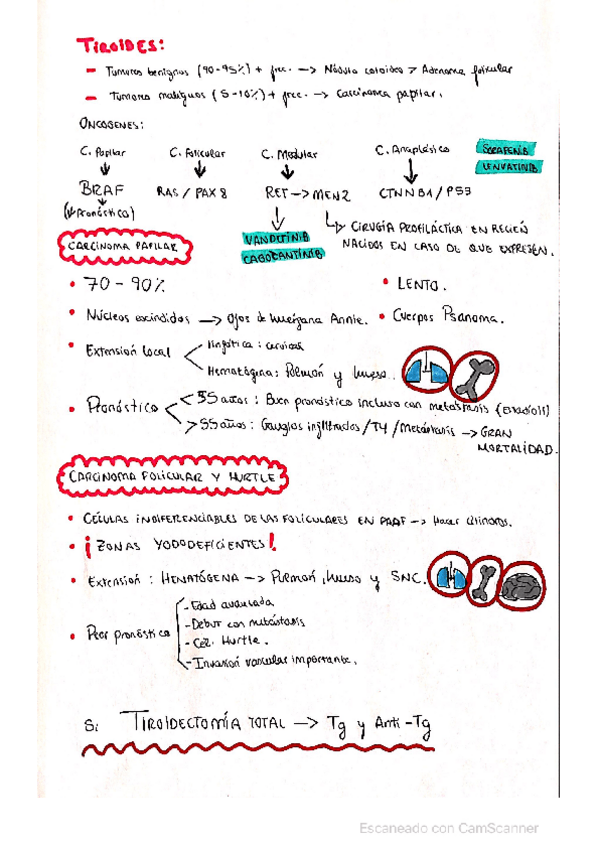 TIROIDES:
- Tumores benignos (90-95%) + frec. -> Nódulo coloideo > Adenoma folicular
- Tumores malignos (5-10%) + frec. -> Carcinoma papilar.
ONCOGENES:
C. Papilar C. Folicular C. Medular C. Anaplásico SORAFENIB
LENVATINIB
BRAF RAS / PAX8 RET -> MEN2 CTNNB1 / P53
(↓ Pronóstico)
VANDETINIB
CABOZANTINIB
CIRUGÍA PROFILÁCTICA EN RECIÉN
NACIDOS EN CASO DE QUE EXPRESEN.
CARCINOMA PAPILAR
• 70 - 90%
• LENTO.
• Núcleos escindidos -> Ojos de huérfana Annie.
• Cuerpos Psamoma.
• Extensión local
linfática : cervical
Hematógena : Pulmón y hueso.
• Pronóstico
< 55 años : Buen pronóstico incluso con metástasis (Estadio II)
> 55 años : Ganglios infiltrados / T4 / Metástasis -> GRAN
MORTALIDAD.
CARCINOMA FOLICULAR Y HURTLE
• CÉLULAS INDIFERENCIABLES DE LAS FOLICULARES EN PAAF ->
• ¡ZONAS YODODEFICIENTES!
• Extensión : HEMATÓGENA -> Pulmón, hueso y SNC.
• Peor pronóstico
- Edad avanzada
- Debut con metástasis
- Cél. Hurtle.
- Invasión vascular importante.
Si TIROIDECTOMÍA TOTAL -> Tg y Anti-Tg
Escaneado con CamScanner